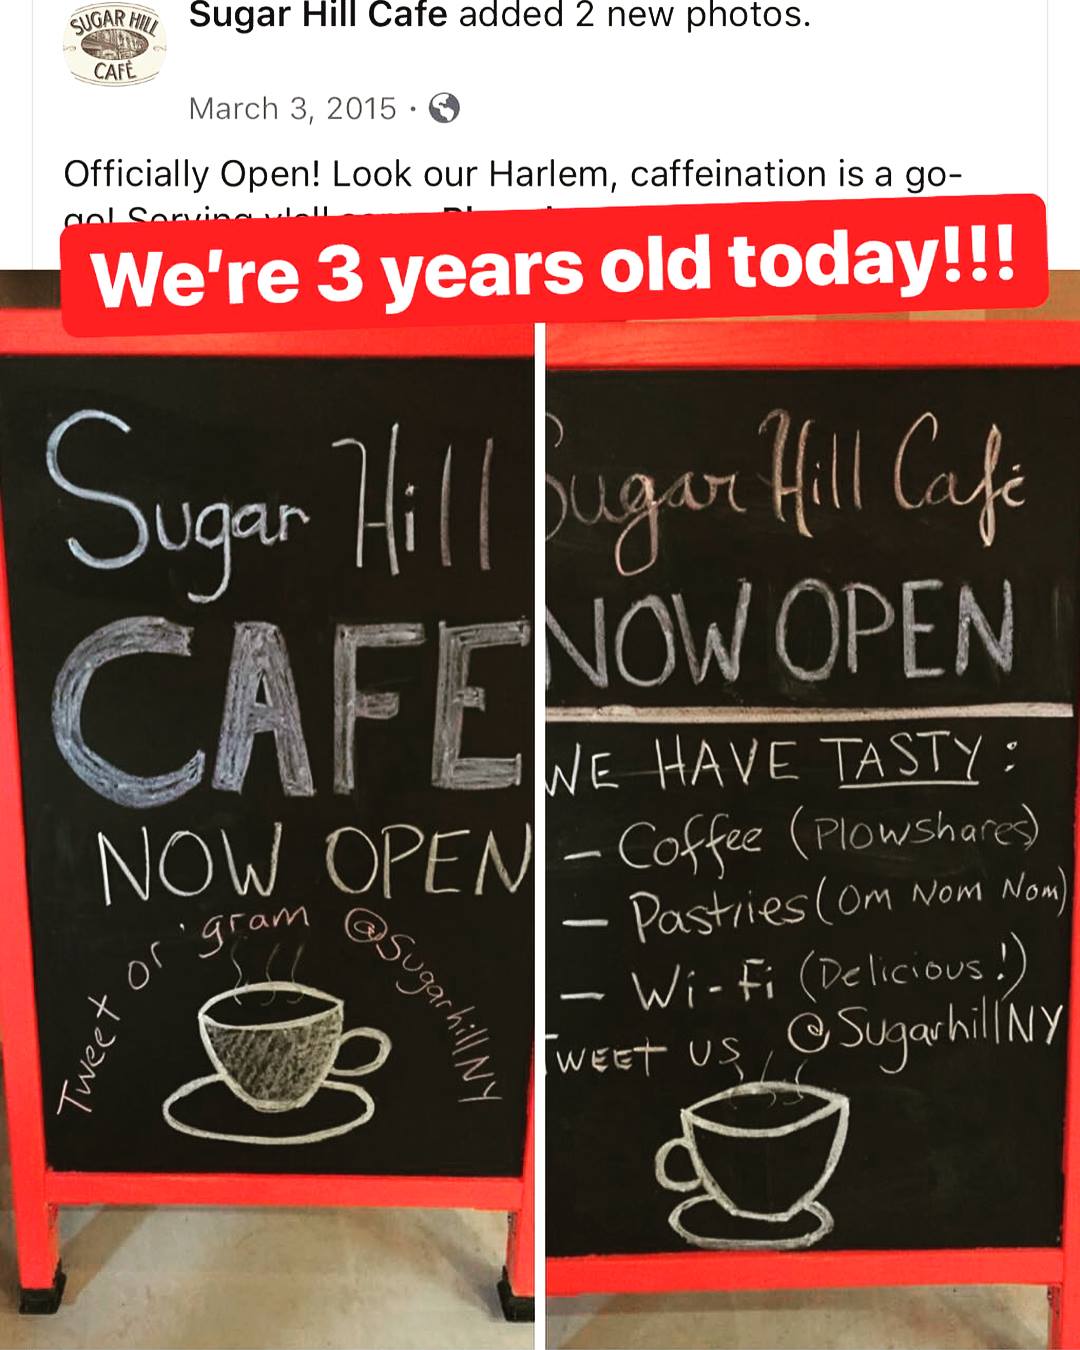 SUGAR HILL
CAFÉ
Sugar Hill Cafe added 2 new photos.
March 3, 2015 ·
Officially Open! Look our Harlem, caffeination is a go-
go! Serving y'all
We're 3 years old today!!!
Sugar Hill
CAFE
NOW OPEN
Tweet or 'gram @SugarhillNY
Sugar Hill Café
NOW OPEN
WE HAVE TASTY:
- Coffee (Plowshares)
- Pastries (Om Nom Nom)
- Wi-Fi (Delicious!)
Tweet us @SugarhillNY